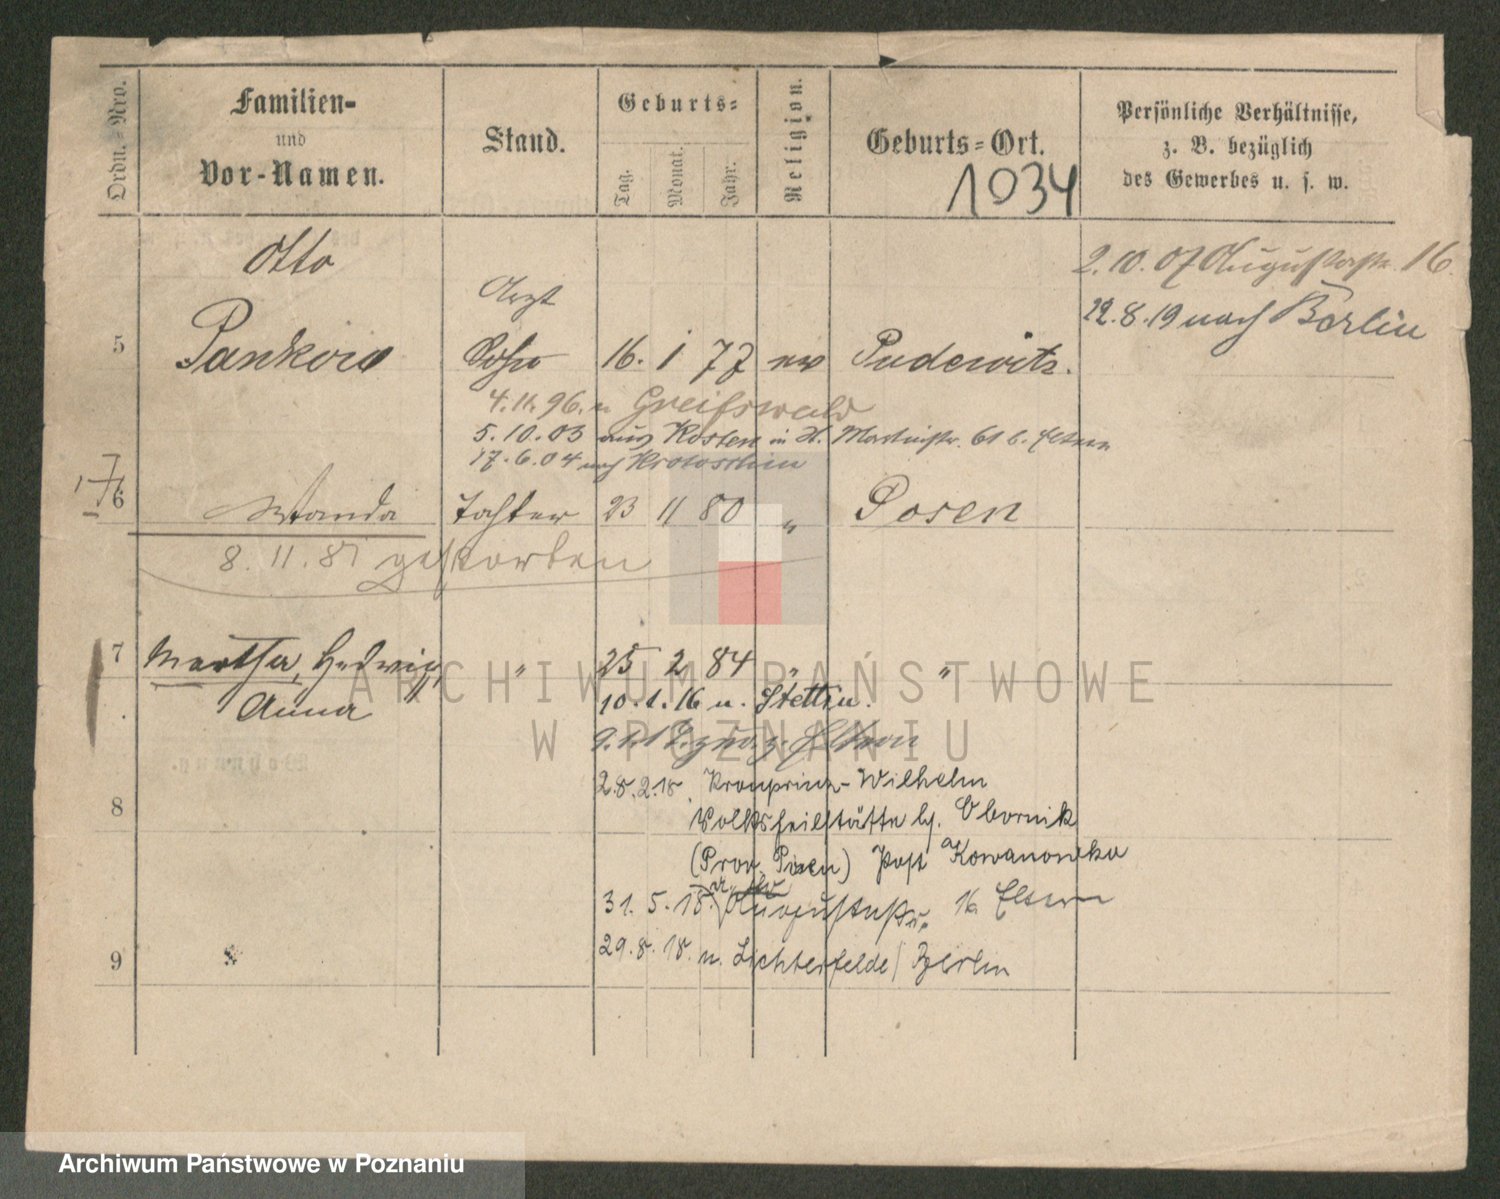 Ordn.-Nro.
Familien-
und
Vor-Namen.
Stand.
Geburts-
Tag.
Monat.
Jahr.
Religion.
Geburts-Ort.
1034
Persönliche Verhältnisse,
z. B. bezüglich
des Gewerbes u. s. w.
Otto
2.10.07 Augustastr. 16
Arzt
22.8.19 nach Berlin
5 Sohn 16. 1 77 ev Pudewitz.
4.11.96. n. Greifswald
5.10.03 aus Kosten in St. Martinstr. 61 b. Eltern
17.6.04 nach Krotoschin
6 Wanda Tochter 23 11 80 " Posen
8.11.81 gestorben
7 Martha, Hedwig, " 25 2 84 " "
Anna
10.1.16 n. Stettin.
8
28.2.18. Kronprinz-Wilhelm
Volksheilstätte bg. Obornik
(Prov. Posen) Post Kowanowko
31.5.18. Augustastr. 16 Eltern
9
29.8.18. n. Lichterfelde / Berlin
ARCHIWUM PAŃSTWOWE
W POZNANIU
Archiwum Państwowe w Poznaniu